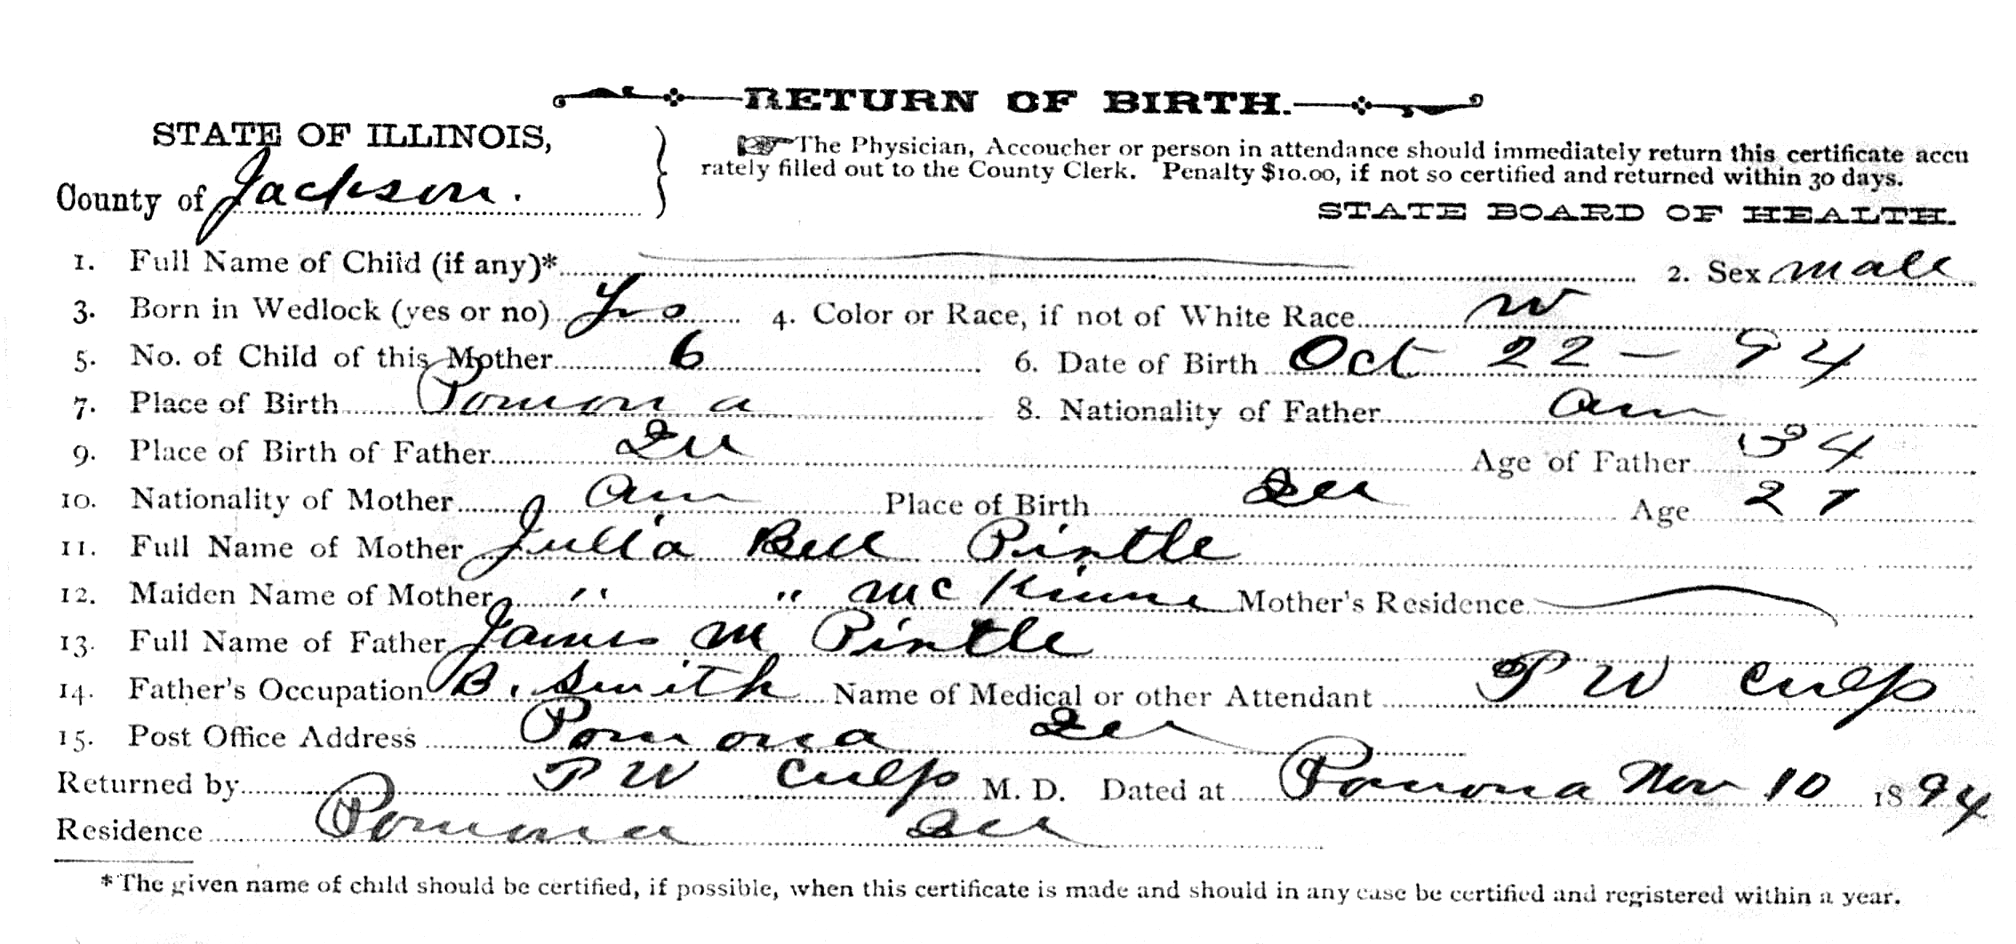 RETURN OF BIRTH.
STATE OF ILLINOIS,
County of Jackson.
The Physician, Accoucher or person in attendance should immediately return this certificate accu
rately filled out to the County Clerk. Penalty $10.00, if not so certified and returned within 30 days.
STATE BOARD OF HEALTH.
1. Full Name of Child (if any)* 2. Sex male
3. Born in Wedlock (yes or no) Yes 4. Color or Race, if not of White Race W
5. No. of Child of this Mother 6 6. Date of Birth Oct 22 - 94
7. Place of Birth Pomona 8. Nationality of Father Am
9. Place of Birth of Father Ill Age of Father 34
10. Nationality of Mother Am Place of Birth Ill Age 27
11. Full Name of Mother Julia Bell Pintle
12. Maiden Name of Mother " " McKinne Mother's Residence
13. Full Name of Father James M Pintle
14. Father's Occupation B. Smith Name of Medical or other Attendant P W Culp
15. Post Office Address Pomona Ill
Returned by P W Culp M. D. Dated at Pomona Nov 10 1894
Residence Pomona Ill
*The given name of child should be certified, if possible, when this certificate is made and should in any case be certified and registered within a year.